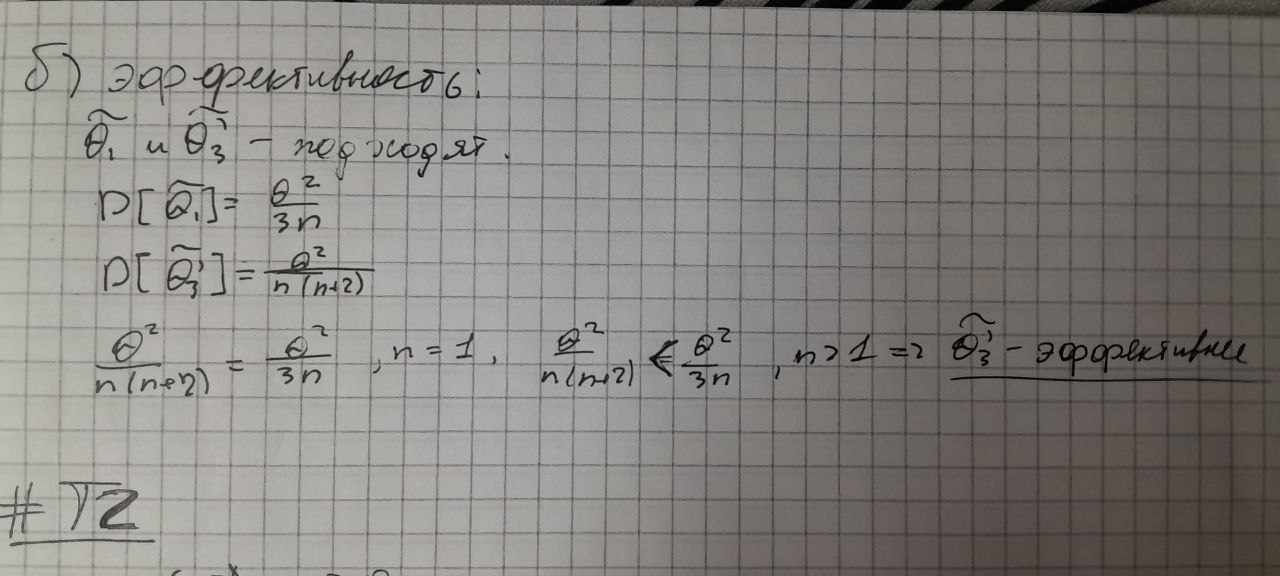 б) эффективность:
θ̃₁ и θ̃₃' – подходят.
D[θ̃₁] = θ²/3n
D[θ̃₃'] = θ²/n(n+2)
θ²/n(n+2) = θ²/3n , n = 1, θ²/n(n+2) < θ²/3n , n > 1 => θ̃₃' – эффективнее
# T2